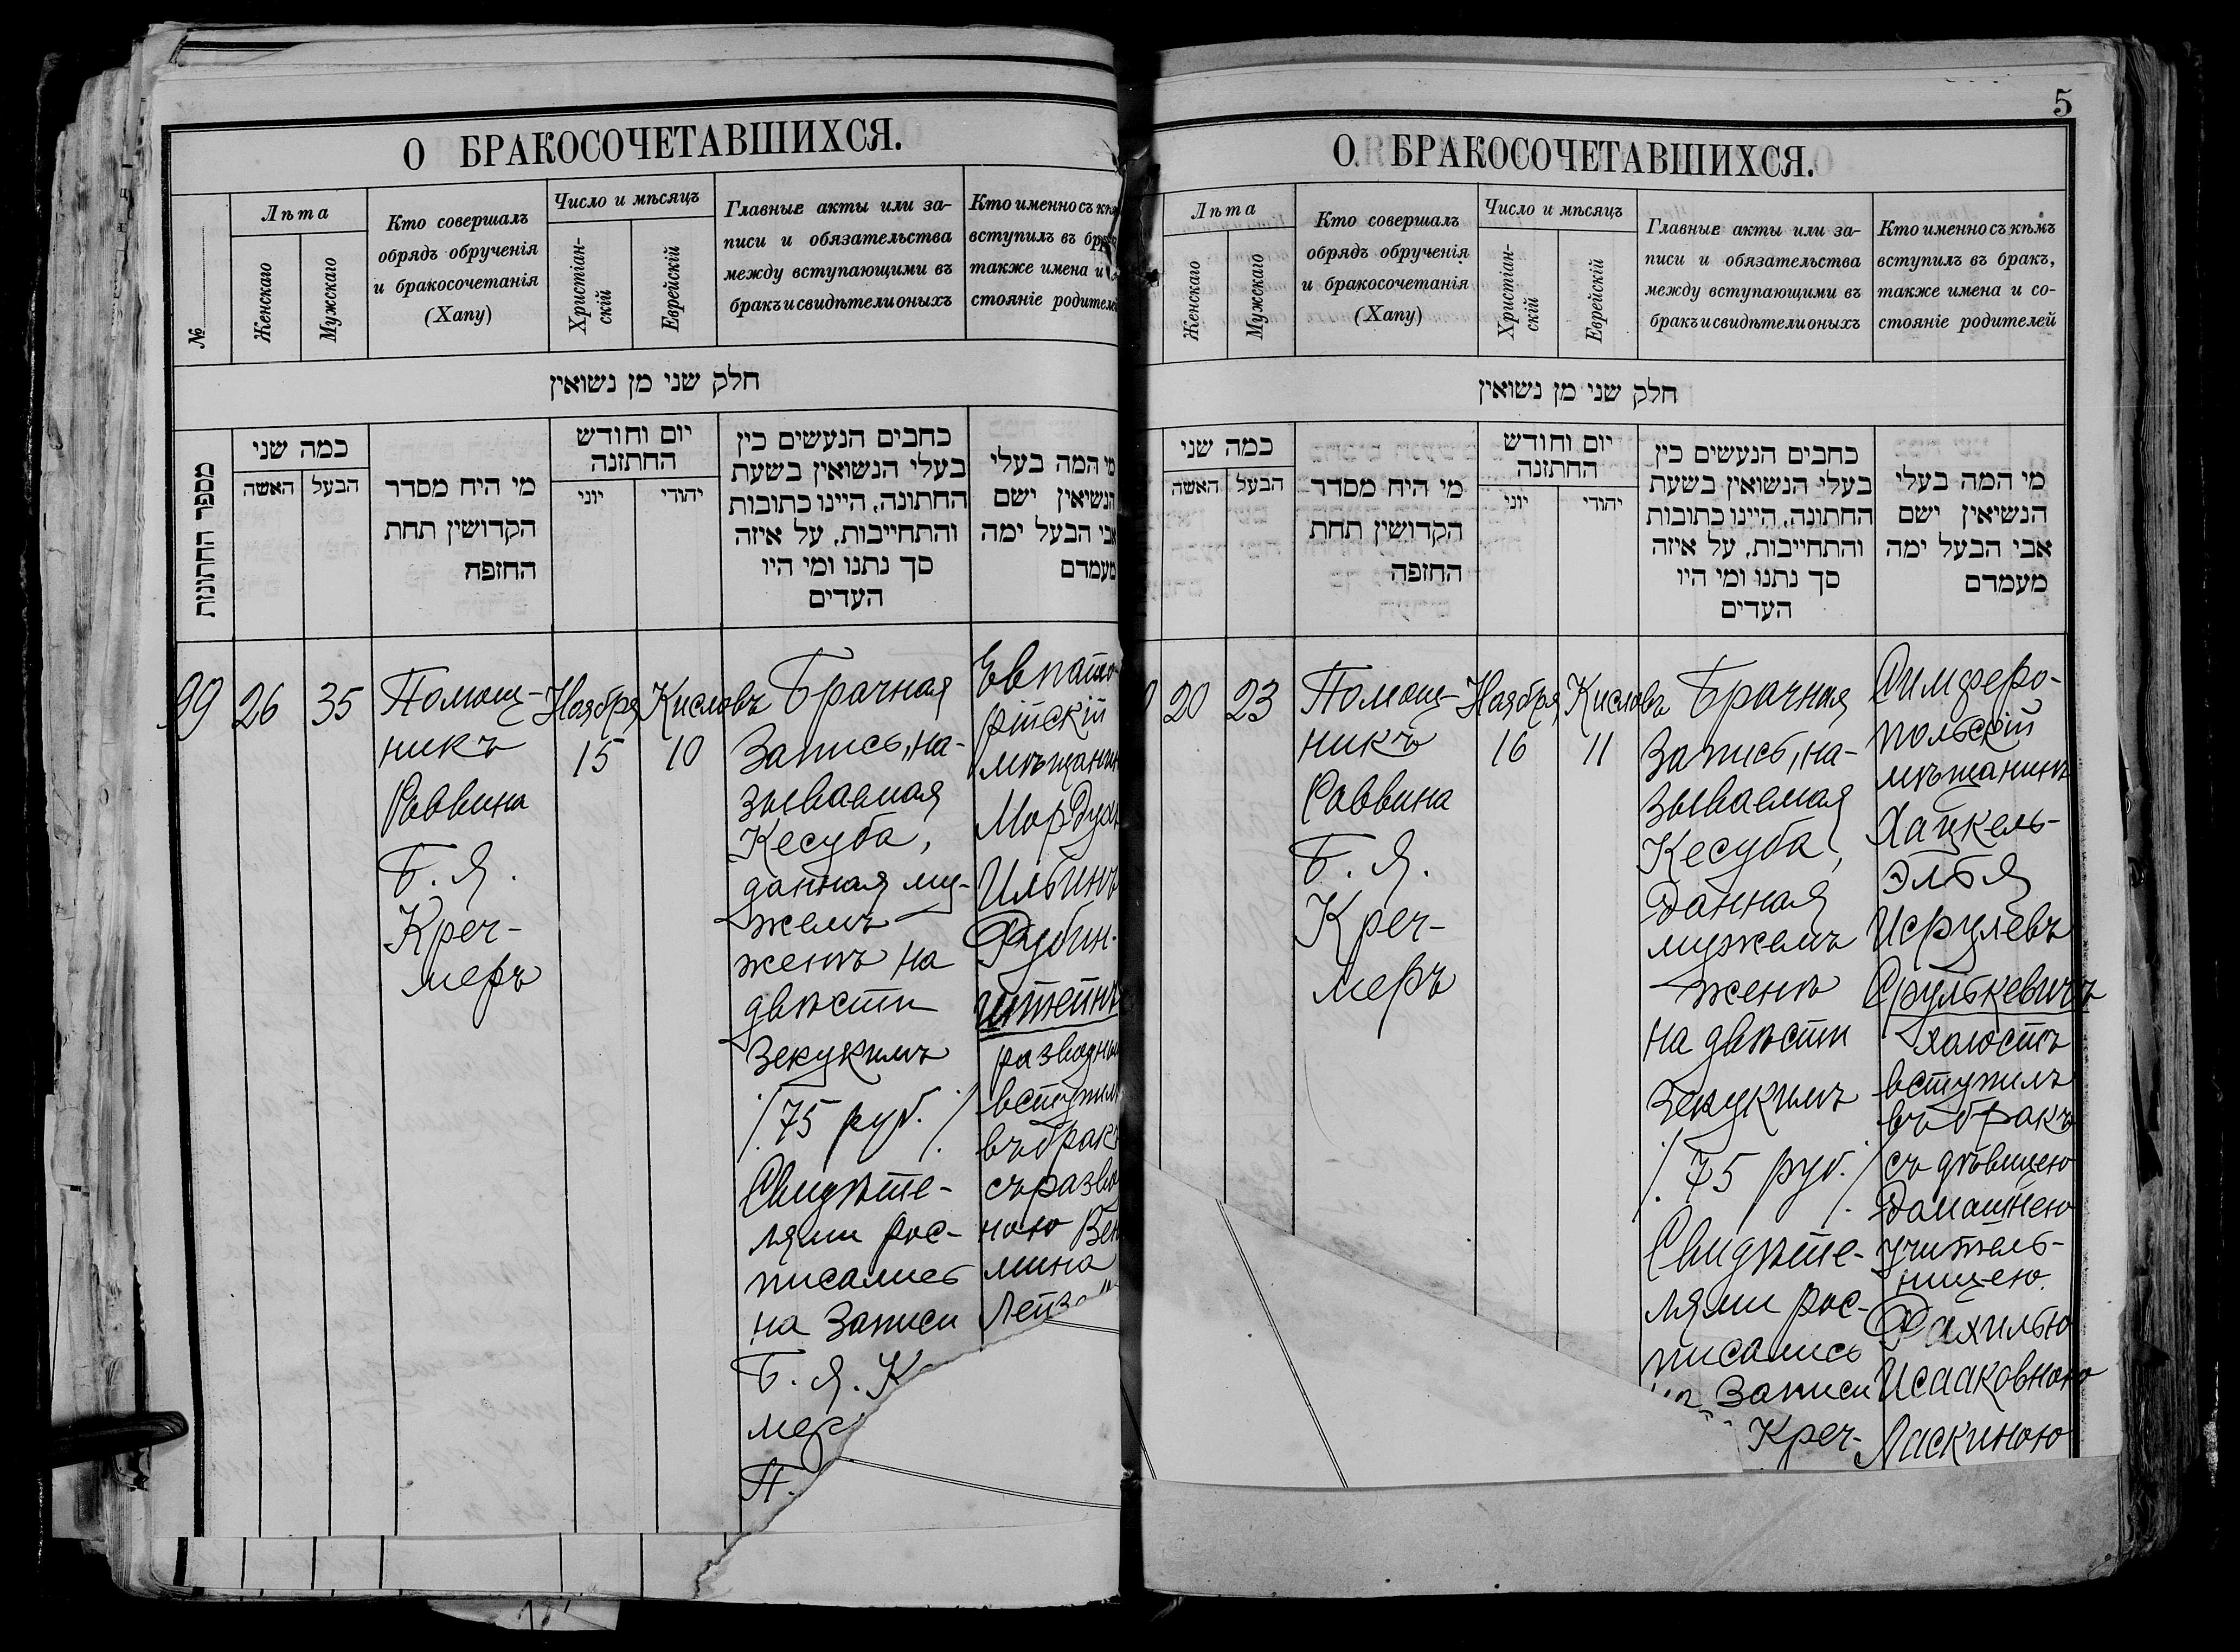 О БРАКОСОЧЕТАВШИХСЯ.
№
Лѣта
Женскаго
Мужскаго
Кто совершалъ
обрядъ обрученія
и бракосочетанія
(Хапу)
Число и мѣсяцъ
Христіан-
скій
Еврейскій
Главные акты или за-
писи и обязательства
между вступающими въ
бракъ и свидѣтели оныхъ
Кто именно съ
вступилъ въ
также имена и
стояніе родител
חלק שני מן נשואין
מספר החתונות
כמה שני
האשה
הבעל
מי היח מסדר
הקדושין תחת
החזפה
יום וחודש
החתזנה
יוני
יהודי
כחבים הנעשים כין
בעלי הנשואין בשעת
החתונה, היינו כתובות
והתחייבות, על איזה
סך נתנו ומי היו
העדים
מי המה בעלי
הנשיאין ישם
אבי הבעל ימה
מעמדם
99
26
35
Помощ-
никъ
Раввина
Б. Я.
Креч-
меръ
Ноября
15
Кисловъ
10
Брачная
Запись, на-
зываемая
Кесуба,
данная му-
жемъ
женѣ на
двѣсти
Зекукимъ
/. 75 руб. /.
Свидѣте-
лями рос-
писались
на Записи
Б. Я. К
мер
П.
Евпато-
рійскій
мѣщанин
Мордух
Ильинъ
Рубин-
штейнъ
разводны
вступил
въ бракъ
съ разво
ною Вен
мина
Лейз
5
О БРАКОСОЧЕТАВШИХСЯ.
Лѣта
Женскаго
Мужскаго
Кто совершалъ
обрядъ обрученія
и бракосочетанія
(Хапу)
Число и мѣсяцъ
Христіан-
скій
Еврейскій
Главные акты или за-
писи и обязательства
между вступающими въ
бракъ и свидѣтели оныхъ
Кто именно съ кѣмъ
вступилъ въ бракъ,
также имена и со-
стояніе родителей
חלק שני מן נשואין
כמה שני
האשה
הבעל
מי היח מסדר
הקדושין תחת
החזפה
יום וחודש
החתזנה
יוני
יהודי
כחבים הנעשים כין
בעלי הנשואין בשעת
החתונה, היינו כתובות
והתחייבות, על איזה
סך נתנו ומי היו
העדים
מי המה בעלי
הנשיאין ישם
אבי הבעל ימה
מעמדם
20
23
Помощ-
никъ
Раввина
Б. Я.
Креч-
меръ
Ноября
16
Кисловъ
11
Брачная
Запись, на-
зываемая
Кесуба,
данная
мужемъ
женѣ
на двѣсти
Зекукимъ
/. 75 руб. /.
Свидѣте-
лями рос-
писались
на Записи
Креч-
Симферо-
польскій
мѣщанинъ
Хацкель-
Элья
Исрулевъ
Срулькевичъ
холостъ
вступилъ
въ бракъ
съ дѣвицею
домашнею
учитель-
ницею
Рахилью
Исааковною
Ласкиною